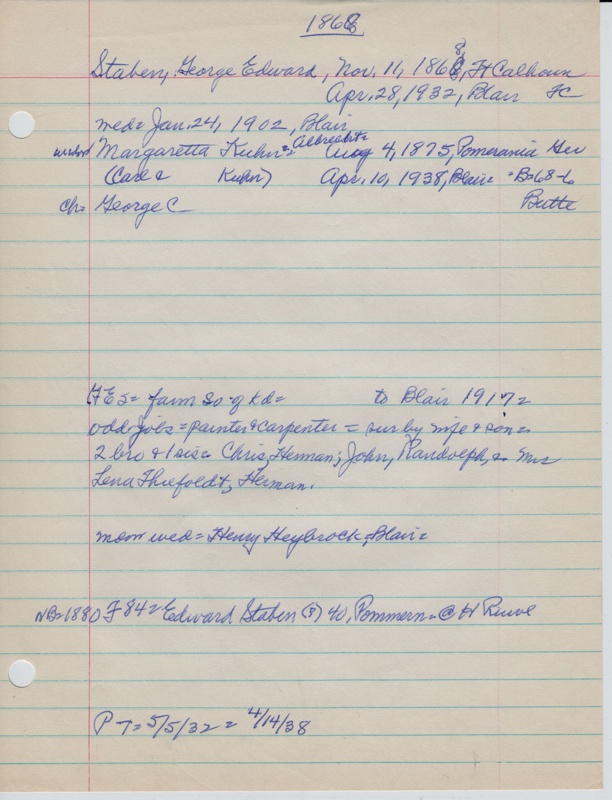 1868
Staben, George Edward, Nov. 11, 1868, Ft Calhoun
Apr. 28, 1932, Blair FC
med= Jan. 24, 1902, Blair
Margaretta Kuhn= Albrecht= Aug 4, 1875, Pomerania Ger
(Carl & Kuhn) Apr. 10, 1938, Blair= B=68-6
ch= George C Butte
GES= farm so of kd= to Blair 1917=
odd jobs= painter & carpenter = sur by wife & son=
2 bro & 1 sis= Chris, Herman; John, Randolph, & Mrs
Lena Thiefoldt, Herman.
mom wed= Henry Heybrock, Blair=
NB=1880 F 84= Edward Staben (?) 40, Pommern=
P T= 5/5/32 = 4/14/38